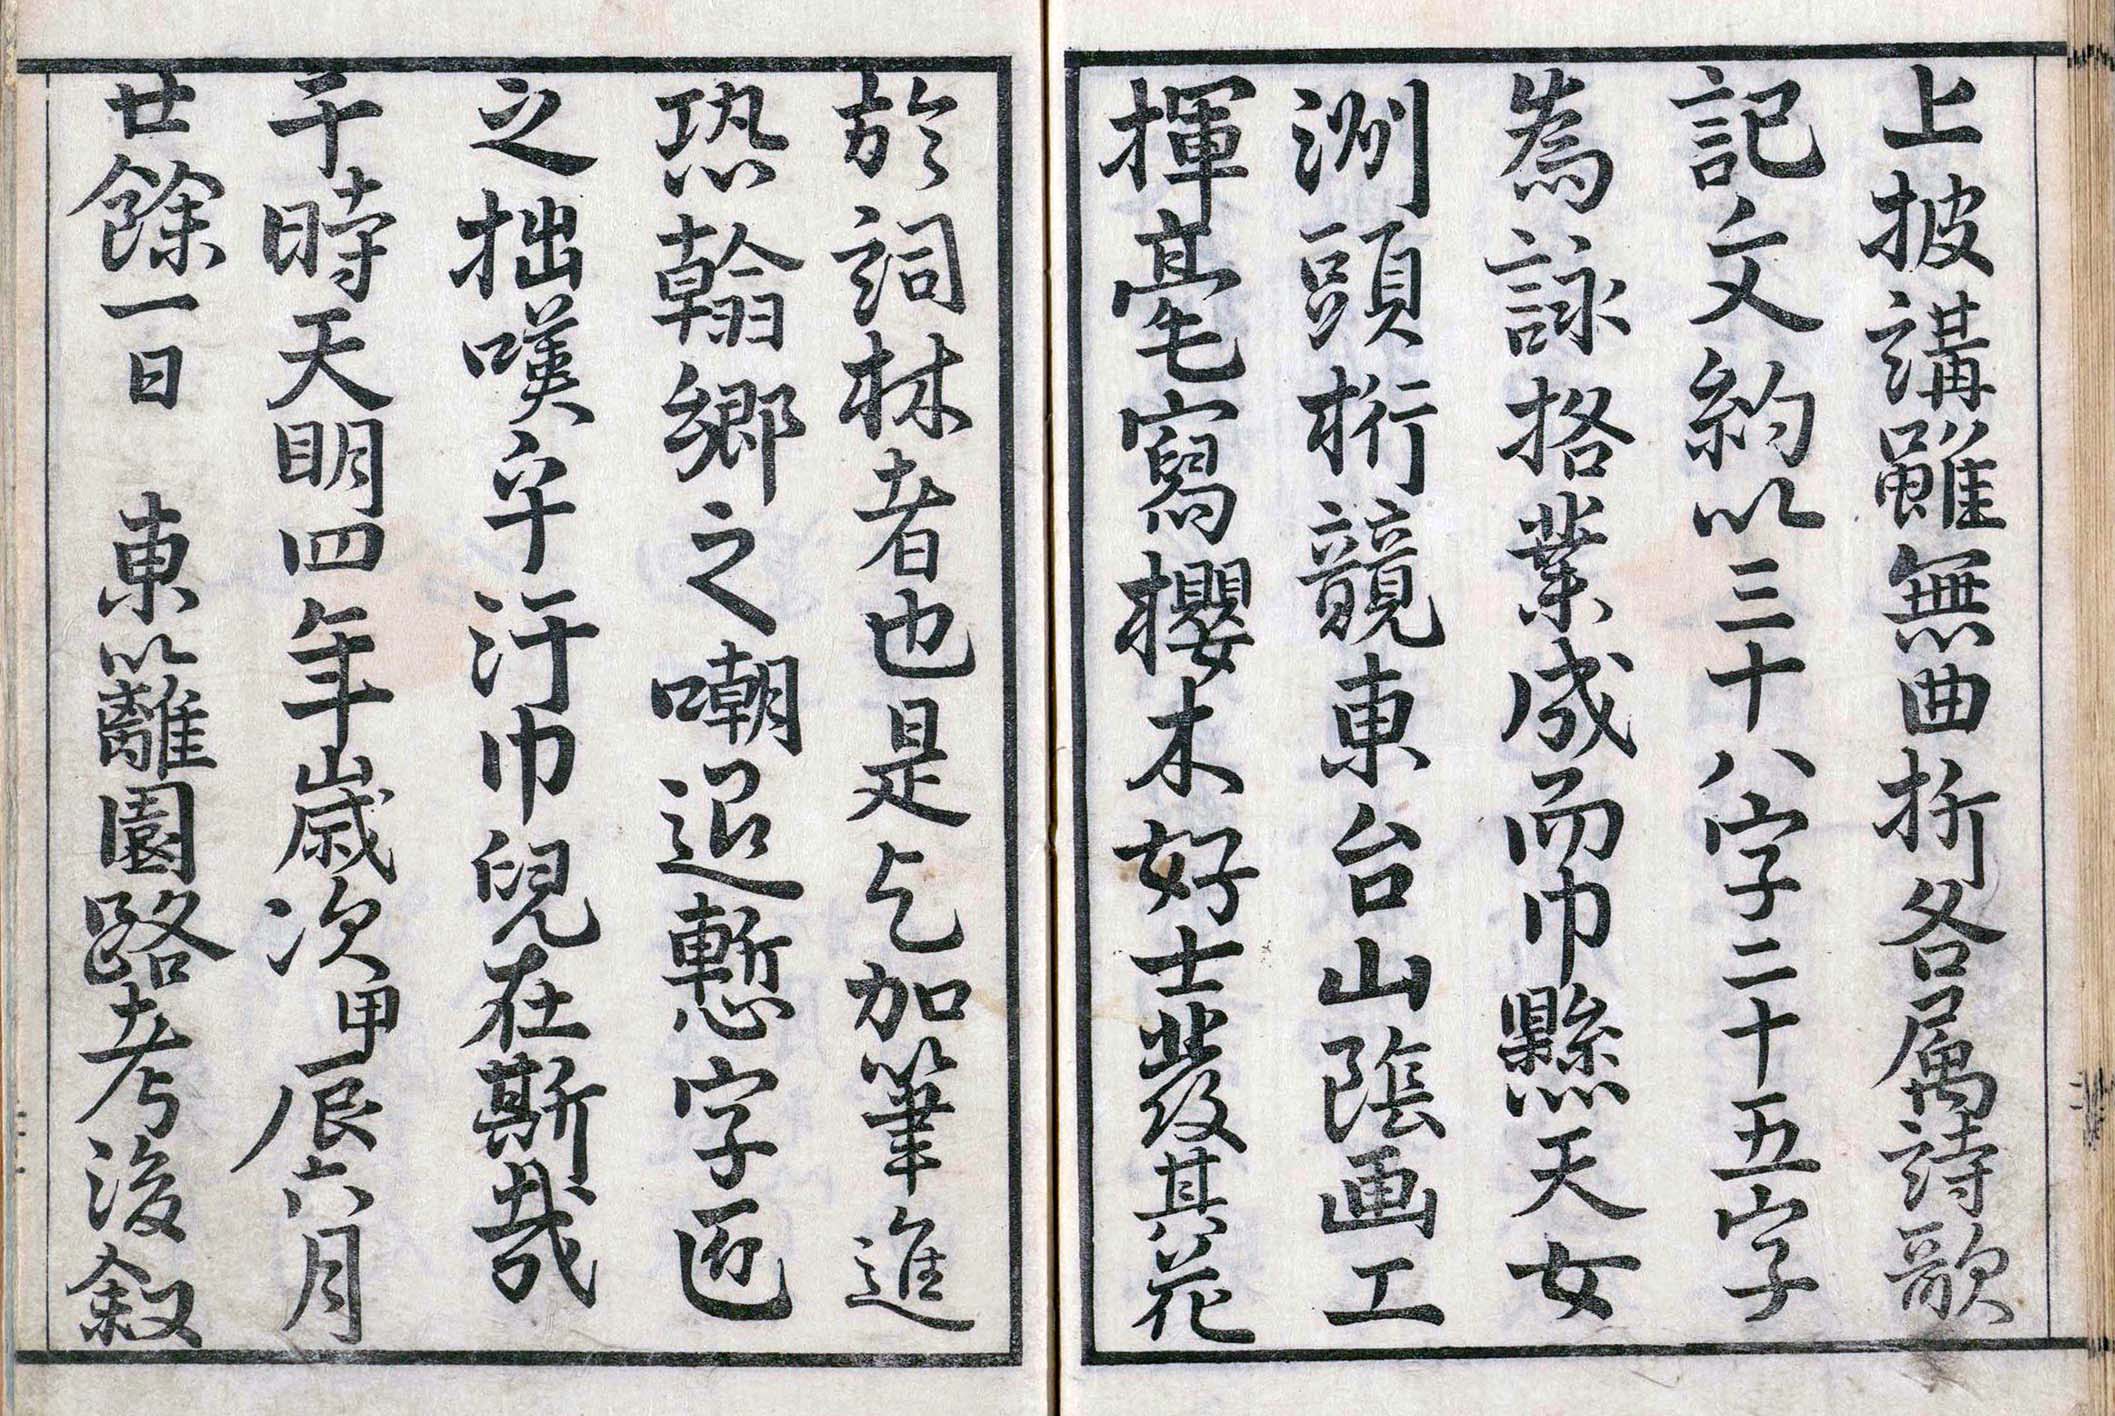 上披講雖無曲折各属詩歌
記文約以三十八字二十五字
為詠格業成而巾懸天女
渕頭桁競東台山陰画工
揮毫寫櫻木好士發其花
於詞林者也是乞加筆進
恐翰郷之嘲退慙字匠
之拙嘆乎汗巾皃在斯哉
于時天明四年歳次甲辰六月
廿餘一日 東籬園路考後叙